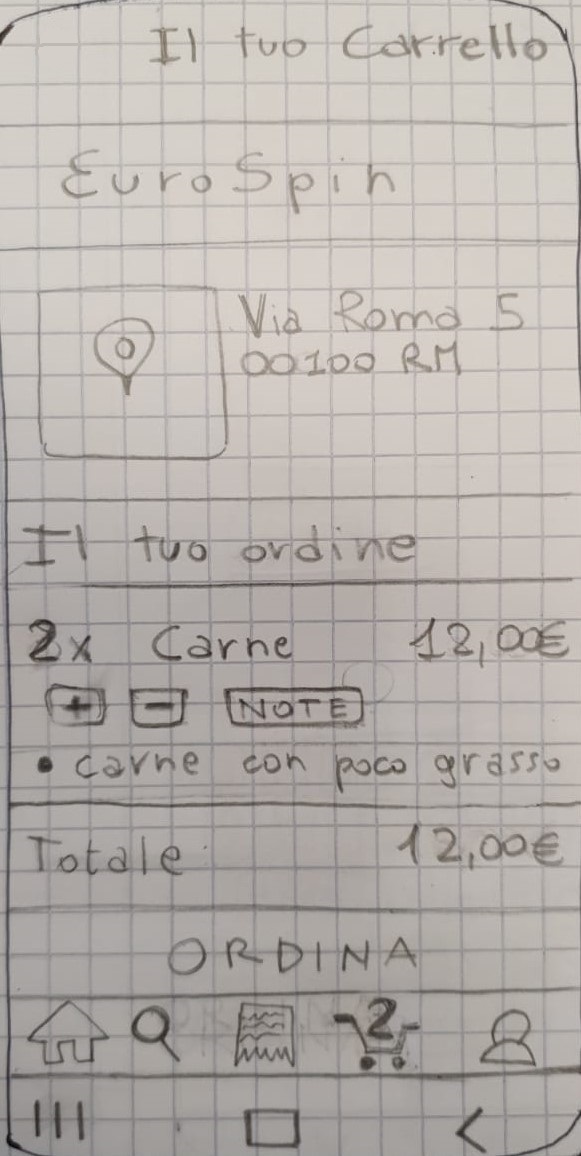 Il tuo Carrello
EuroSpin
Via Roma 5
00100 RM
Il tuo ordine
2x Carne 12,00€
+ - NOTE
• carne con poco grasso
Totale 12,00€
ORDINA
2